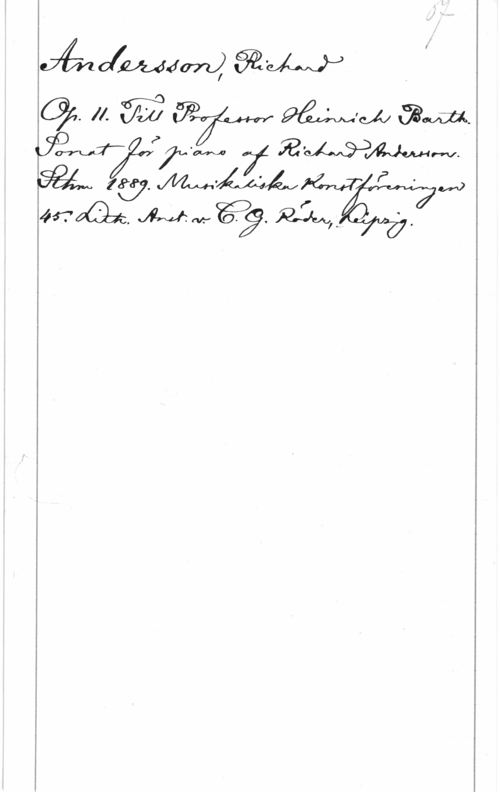 57
Andersson, Richard
Op. 11. Till Professor Heinrich Barth.
Sonat för piano af Richard Andersson.
Sthm 1889. Musikaliska Konstföreningen
45. Lith. Anst. v. C. G. Röder, Leipzig.